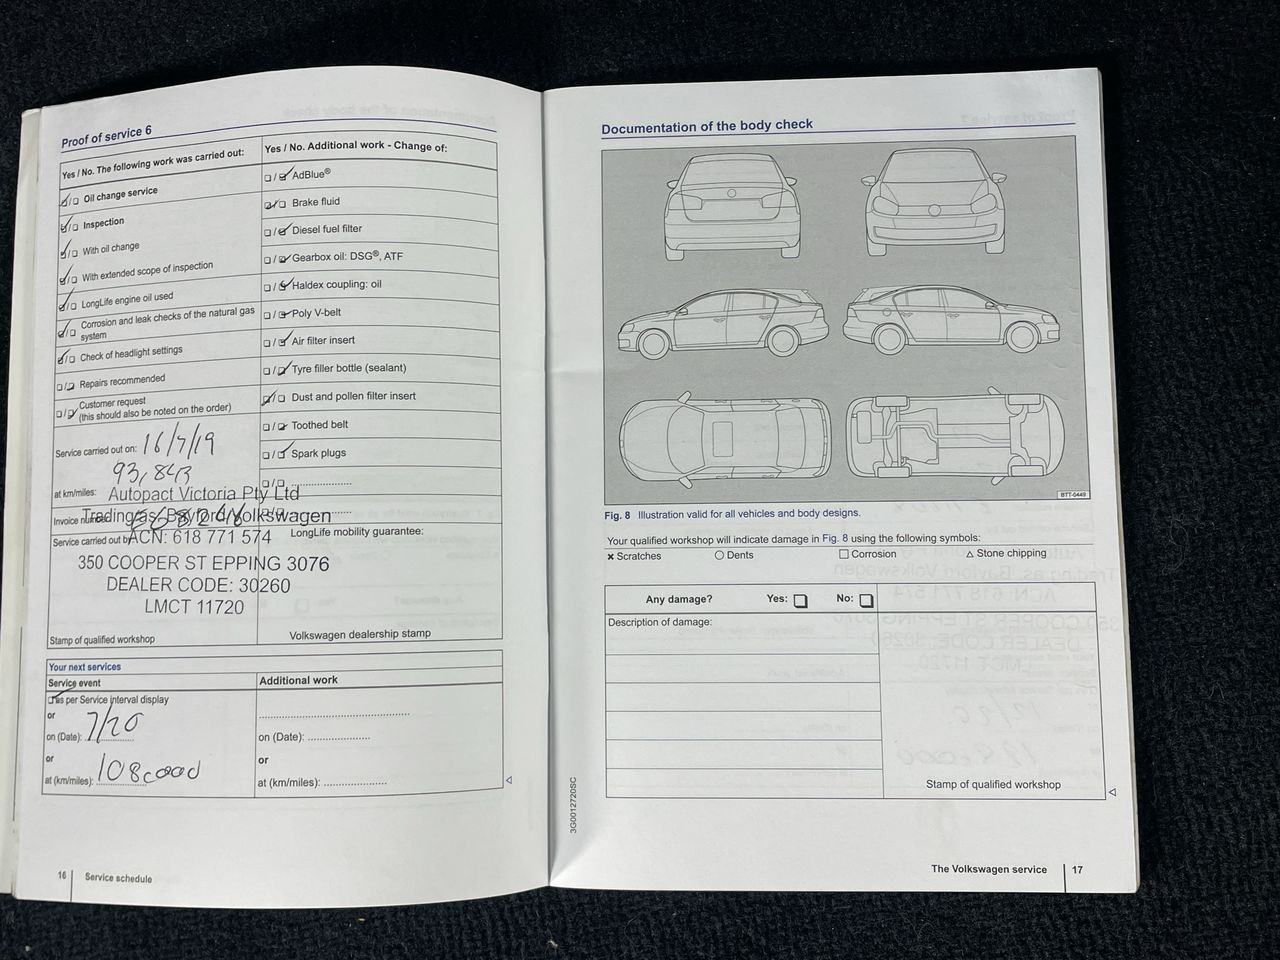 Proof of service 6
Yes / No. The following work was carried out:
Oil change service
Inspection
With oil change
With extended scope of inspection
LongLife engine oil used
Corrosion and leak checks of the natural gas
system
Check of headlight settings
Repairs recommended
Customer request
(this should also be noted on the order)
Service carried out on: 16/7/19
93,843
at km/miles:
Invoice number
Service carried out by
Autopact Victoria Pty Ltd
Trading as: Bayford Volkswagen
ACN: 618 771 574
350 COOPER ST EPPING 3076
DEALER CODE: 30260
LMCT 11720
Stamp of qualified workshop
Yes / No. Additional work - Change of:
AdBlue®
Brake fluid
Diesel fuel filter
Gearbox oil: DSG®, ATF
Haldex coupling: oil
Poly V-belt
Air filter insert
Tyre filler bottle (sealant)
Dust and pollen filter insert
Toothed belt
Spark plugs
LongLife mobility guarantee:
Volkswagen dealership stamp
Your next services
Service event
as per Service interval display
or
on (Date): 7/20
or
at (km/miles): 108,000
Additional work
on (Date):
or
at (km/miles):
16 Service schedule
Documentation of the body check
BTT-0449
Fig. 8 Illustration valid for all vehicles and body designs.
Your qualified workshop will indicate damage in Fig. 8 using the following symbols:
× Scratches ○ Dents □ Corrosion △ Stone chipping
Any damage? Yes: No:
Description of damage:
Stamp of qualified workshop
3G0012720SC
The Volkswagen service 17